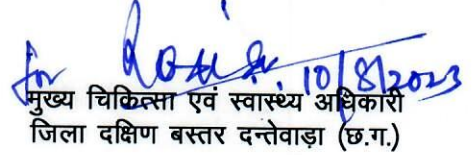 for
10/8/2023
मुख्य चिकित्सा एवं स्वास्थ्य अधिकारी
जिला दक्षिण बस्तर दन्तेवाड़ा (छ.ग.)